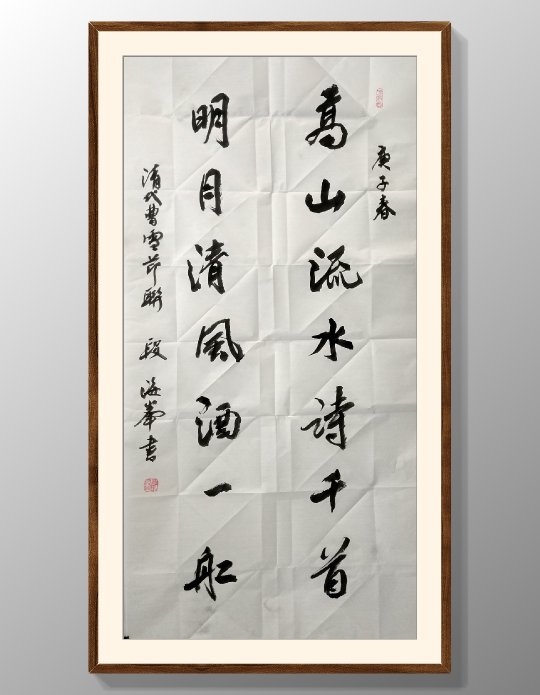 庚子春
高山流水詩千首
明月清風酒一船
清代曹雪芹聯 段海峯書